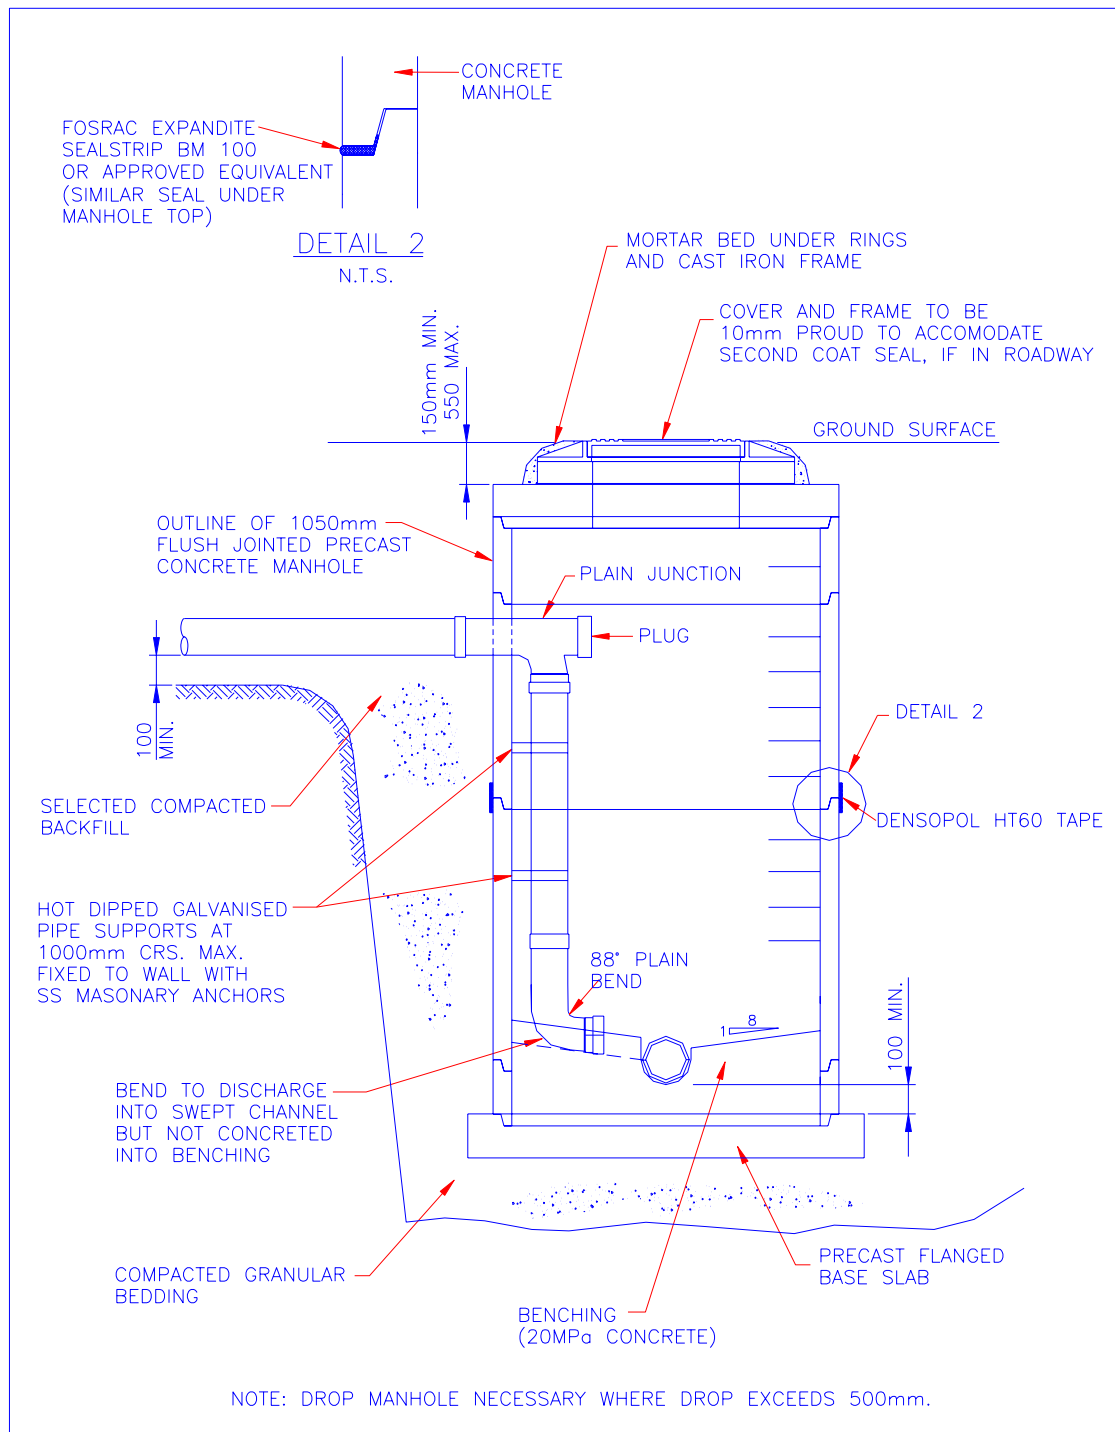 CONCRETE
MANHOLE
FOSRAC EXPANDITE
SEALSTRIP BM 100
OR APPROVED EQUIVALENT
(SIMILAR SEAL UNDER
MANHOLE TOP)
DETAIL 2
N.T.S.
MORTAR BED UNDER RINGS
AND CAST IRON FRAME
COVER AND FRAME TO BE
10mm PROUD TO ACCOMODATE
SECOND COAT SEAL, IF IN ROADWAY
150mm MIN.
550 MAX.
GROUND SURFACE
OUTLINE OF 1050mm
FLUSH JOINTED PRECAST
CONCRETE MANHOLE
PLAIN JUNCTION
PLUG
100
MIN.
DETAIL 2
SELECTED COMPACTED
BACKFILL
DENSOPOL HT60 TAPE
HOT DIPPED GALVANISED
PIPE SUPPORTS AT
1000mm CRS. MAX.
FIXED TO WALL WITH
SS MASONARY ANCHORS
88° PLAIN
BEND
1
8
100 MIN.
BEND TO DISCHARGE
INTO SWEPT CHANNEL
BUT NOT CONCRETED
INTO BENCHING
COMPACTED GRANULAR
BEDDING
PRECAST FLANGED
BASE SLAB
BENCHING
(20MPa CONCRETE)
NOTE: DROP MANHOLE NECESSARY WHERE DROP EXCEEDS 500mm.